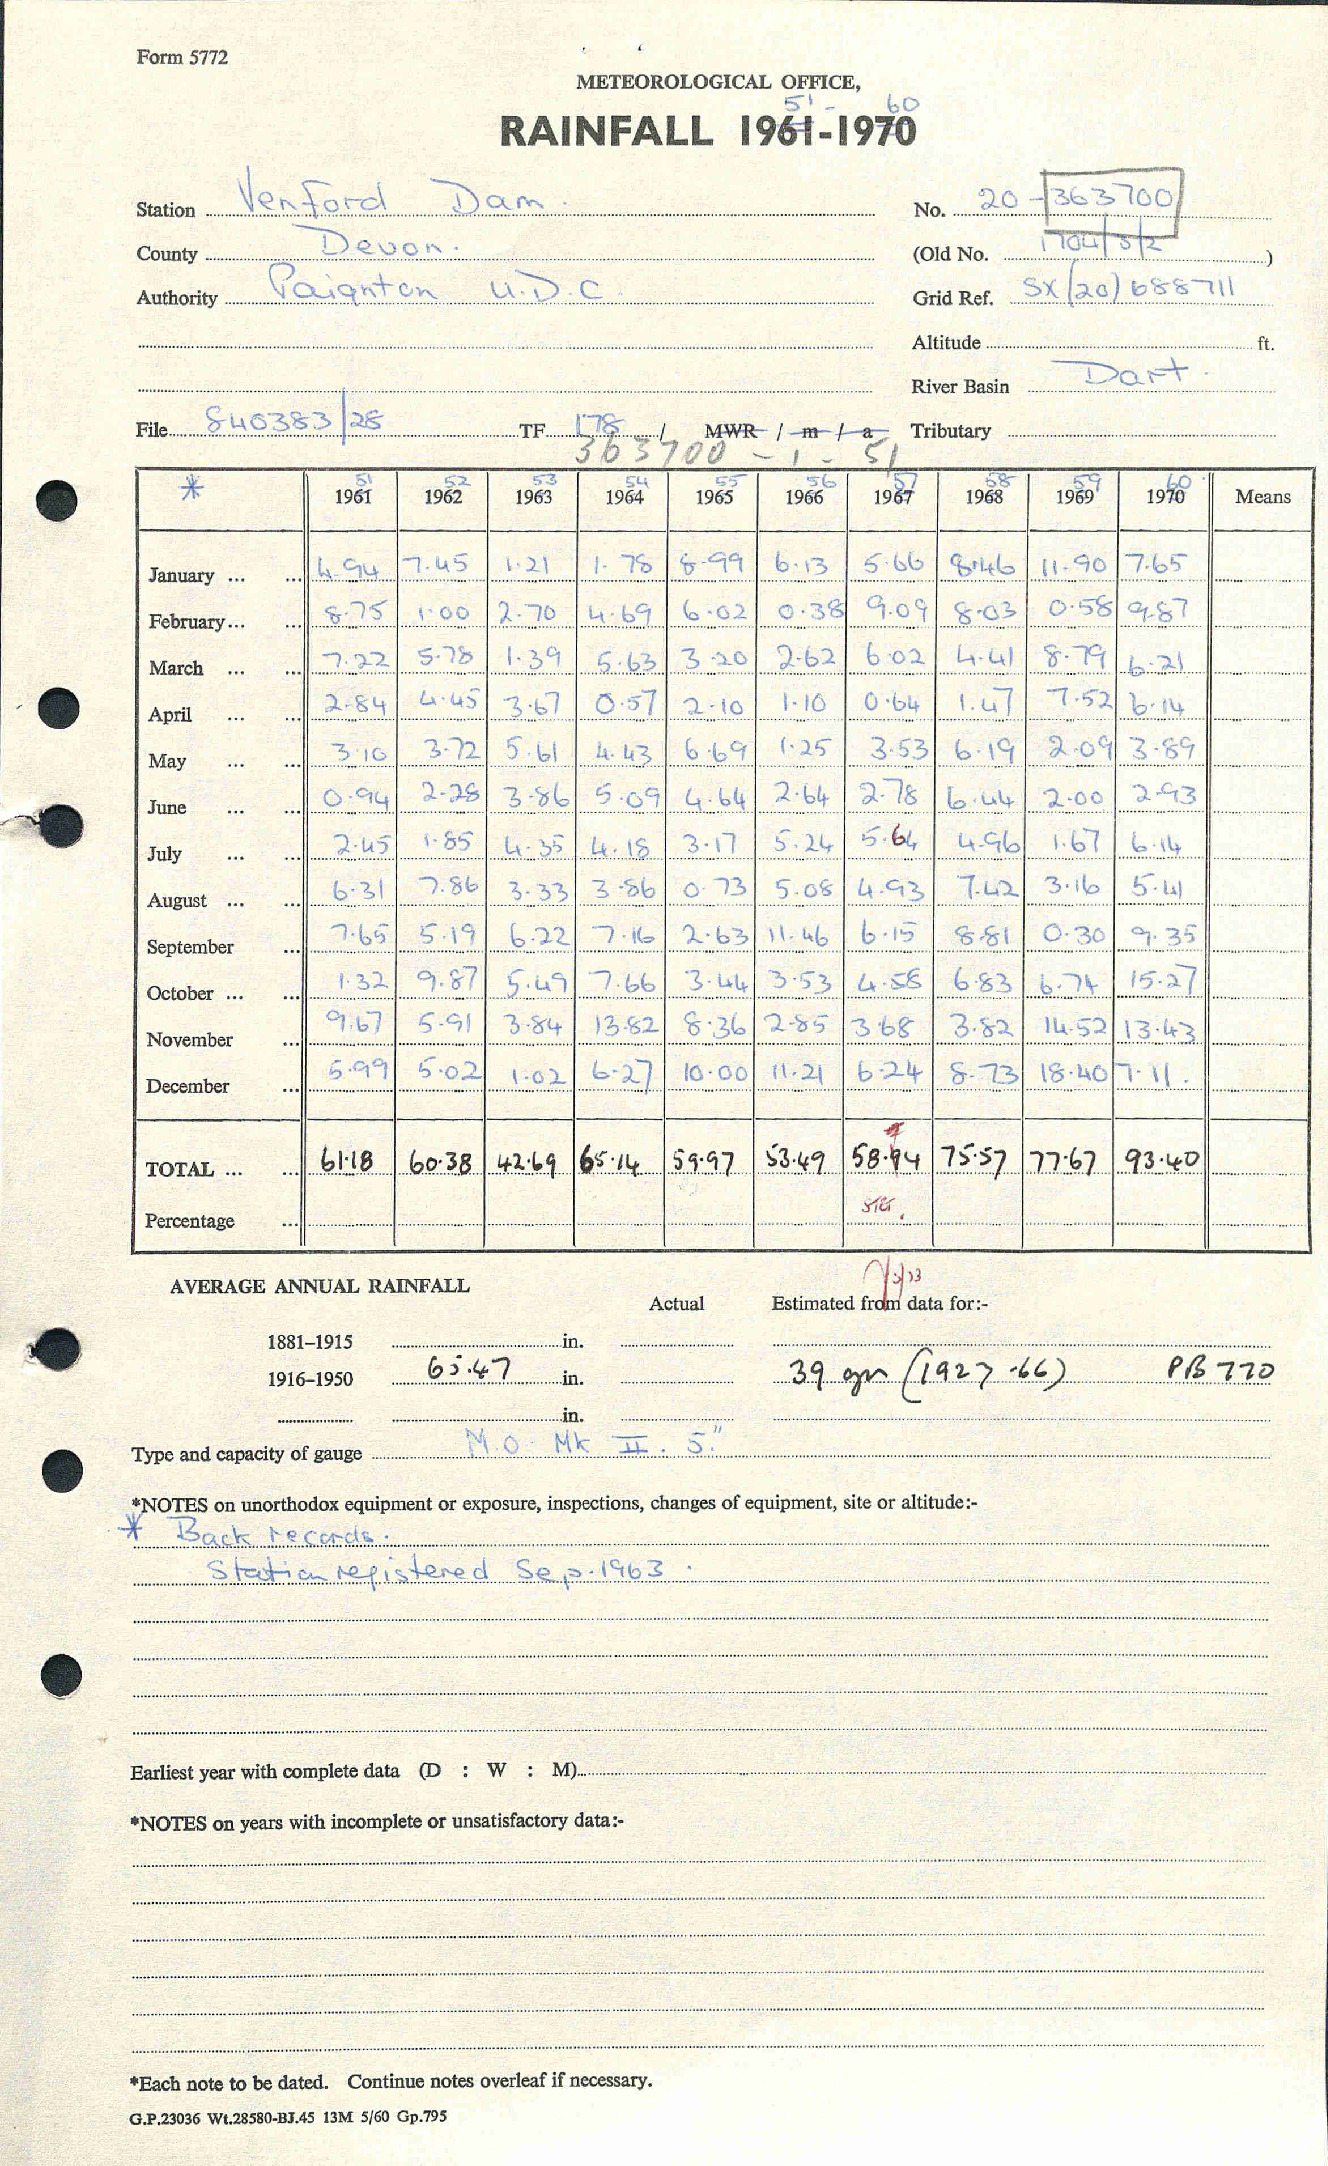 Form 5772
METEOROLOGICAL OFFICE,
51 - 60
RAINFALL 1961-1970
Station Venford Dam. No. 20 - 363700
County Devon. (Old No. 1704/5/2 )
Authority Paignton U.D.C. Grid Ref. SX (20) 688711
Altitude ft.
River Basin Dart.
File 840383/28 TF 178 / MWR / m / a Tributary
363700 - 1 - 51
* 51 52 53 54 55 56 57 58 59 60
1961 1962 1963 1964 1965 1966 1967 1968 1969 1970 Means
January ... ... 4.94 7.45 1.21 1.78 8.99 6.13 5.66 8.46 11.90 7.65
February... ... 8.75 1.00 2.70 4.69 6.02 0.38 9.09 8.03 0.58 9.87
March ... ... 7.22 5.78 1.39 5.63 3.20 2.62 6.02 4.41 8.79 6.21
April ... ... 2.84 4.45 3.67 0.57 2.10 1.10 0.64 1.47 7.52 6.14
May ... ... 3.10 3.72 5.61 4.43 6.69 1.25 3.53 6.19 2.09 3.89
June ... ... 0.94 2.28 3.86 5.09 4.64 2.64 2.78 6.44 2.00 2.93
July ... ... 2.45 1.85 4.35 4.18 3.17 5.24 5.64 4.96 1.67 6.14
August ... ... 6.31 7.86 3.33 3.86 0.73 5.08 4.93 7.42 3.16 5.41
September ... 7.65 5.19 6.22 7.16 2.63 11.46 6.15 8.81 0.30 9.35
October ... ... 1.32 9.87 5.49 7.66 3.44 3.53 4.58 6.83 6.74 15.27
November ... 9.67 5.91 3.84 13.82 8.36 2.85 3.68 3.82 14.52 13.43
December ... 5.99 5.02 1.02 6.27 10.00 11.21 6.24 8.73 18.40 7.11.
TOTAL ... ... 61.18 60.38 42.69 65.14 59.97 53.49 58.94 75.57 77.67 93.40
Percentage ...
AVERAGE ANNUAL RAINFALL
Actual Estimated from data for:-
1881–1915 in.
1916–1950 65.47 in. 39 gn (1927-66) PB 770
in.
Type and capacity of gauge M.O. Mk II. 5."
*NOTES on unorthodox equipment or exposure, inspections, changes of equipment, site or altitude:-
* Back records.
Station registered Sep. 1963.
Earliest year with complete data (D : W : M)
*NOTES on years with incomplete or unsatisfactory data:-
*Each note to be dated. Continue notes overleaf if necessary.
G.P.23036 Wt.28580-BJ.45 13M 5/60 Gp.795